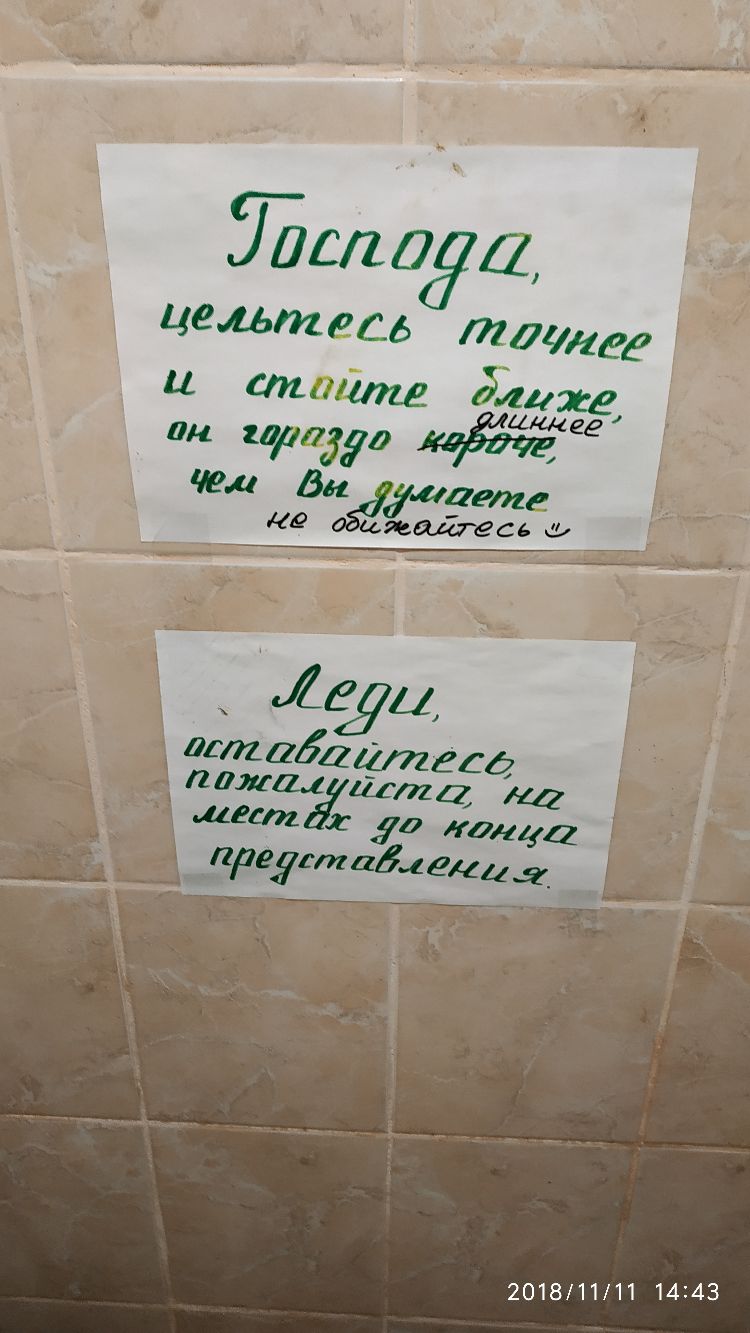 Господа,
цельтесь точнее
и стойте ближе,
длиннее
он гораздо короче,
чем Вы думаете
не обижайтесь
Леди,
оставайтесь,
пожалуйста, на
местах до конца
представления.
2018/11/11 14:43